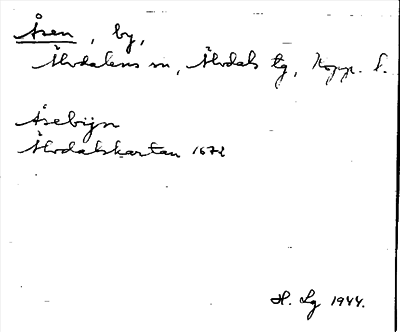 Åsen, by,
Älvdalens sn, Älvdals tg, Kopp. l.
Åsebyn
Älvdalskartan 1672
H. Lg 1944.